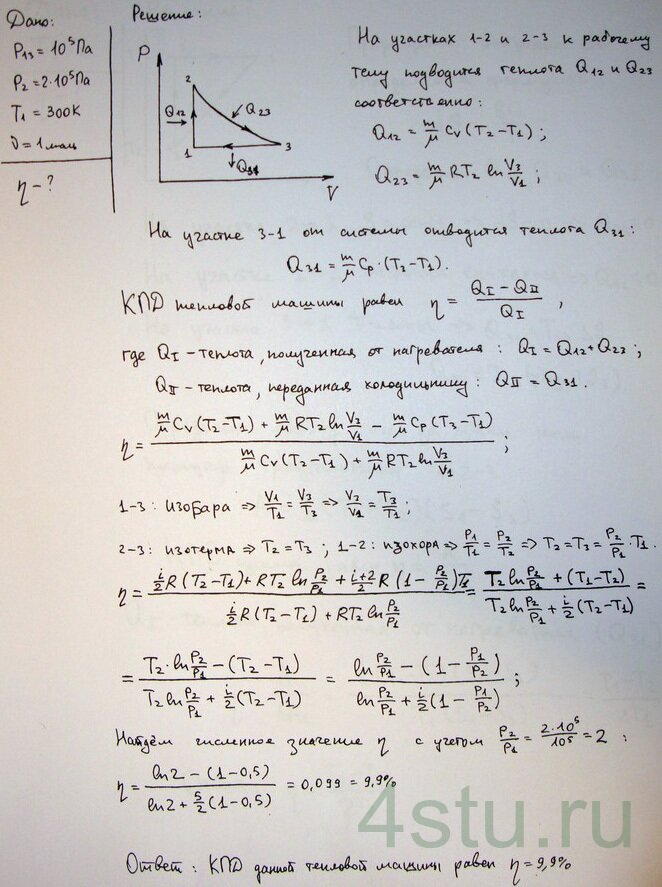 Дано:
P₁₃ = 10⁵ Па
P₂ = 2·10⁵ Па
T₁ = 300К
ν = 1 моль
η - ?
Решение:
P
2
Q₁₂
Q₂₃
1
3
Q₃₁
V
На участках 1-2 и 2-3 к рабочему
телу подводится теплота Q₁₂ и Q₂₃
соответственно:
Q₁₂ = m/μ Cv (T₂-T₁) ;
Q₂₃ = m/μ RT₂ ln V₃/V₁ ;
На участке 3-1 от системы отводится теплота Q₃₁ :
Q₃₁ = m/μ Cp · (T₃-T₁).
КПД тепловой машины равен η = (Q_I - Q_II)/Q_I ,
где Q_I - теплота, полученная от нагревателя : Q_I = Q₁₂ + Q₂₃ ;
Q_II - теплота, переданная холодильнику : Q_II = Q₃₁ .
η = (m/μ Cv (T₂-T₁) + m/μ RT₂ ln V₃/V₁ - m/μ Cp (T₃-T₁)) / (m/μ Cv (T₂-T₁) + m/μ RT₂ ln V₃/V₁) ;
1-3 : изобара => V₁/T₁ = V₃/T₃ => V₃/V₁ = T₃/T₁ ;
2-3 : изотерма => T₂ = T₃ ; 1-2 : изохора => P₁/T₁ = P₂/T₂ => T₂ = T₃ = P₂/P₁ · T₁ .
η = (i/2 R (T₂-T₁) + RT₂ ln P₂/P₁ + (i+2)/2 R (1 - P₂/P₁) T₁) / (i/2 R (T₂-T₁) + RT₂ ln P₂/P₁) = (T₂ ln P₂/P₁ + (T₁-T₂)) / (T₂ ln P₂/P₁ + i/2 (T₂-T₁)) =
= (T₂ · ln P₂/P₁ - (T₂-T₁)) / (T₂ ln P₂/P₁ + i/2 (T₂-T₁)) = (ln P₂/P₁ - (1 - P₁/P₂)) / (ln P₂/P₁ + i/2 (1 - P₁/P₂)) ;
Найдём численное значение η с учетом P₂/P₁ = 2·10⁵/10⁵ = 2 :
η = (ln2 - (1-0,5)) / (ln2 + 5/2 (1-0,5)) = 0,099 = 9,9%
4stu.ru
Ответ : КПД данной тепловой машины равен η = 9,9%